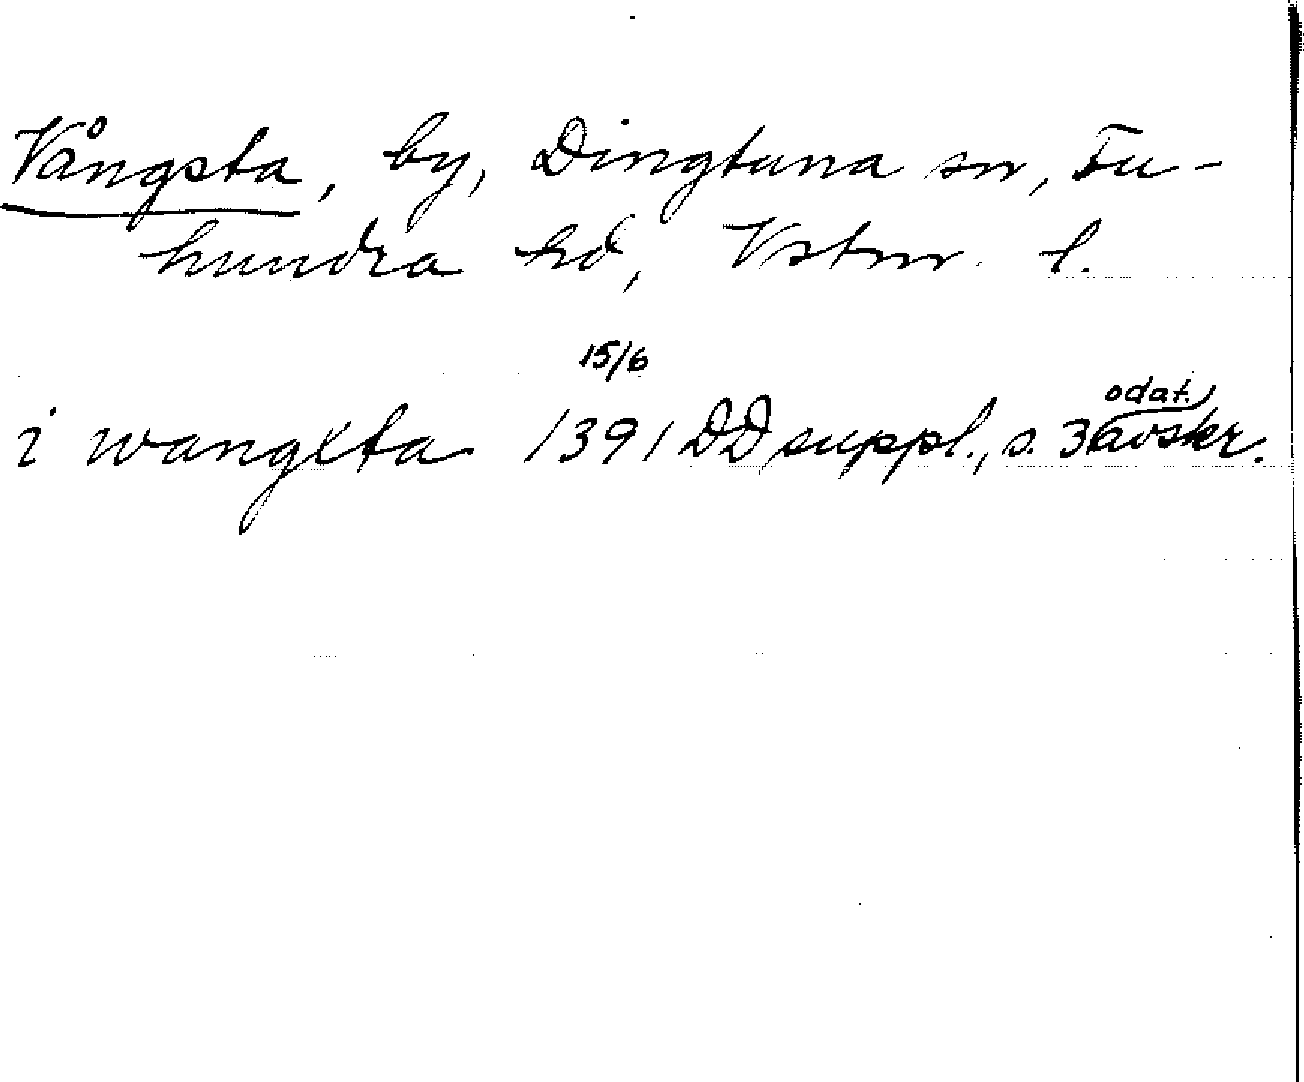 Vångsta, by, Dingtuna sn, Tu-
hundra hd, Vstm. l.
15/6
i wangxta 1391 DD suppl., s. 3 odat. avskr.